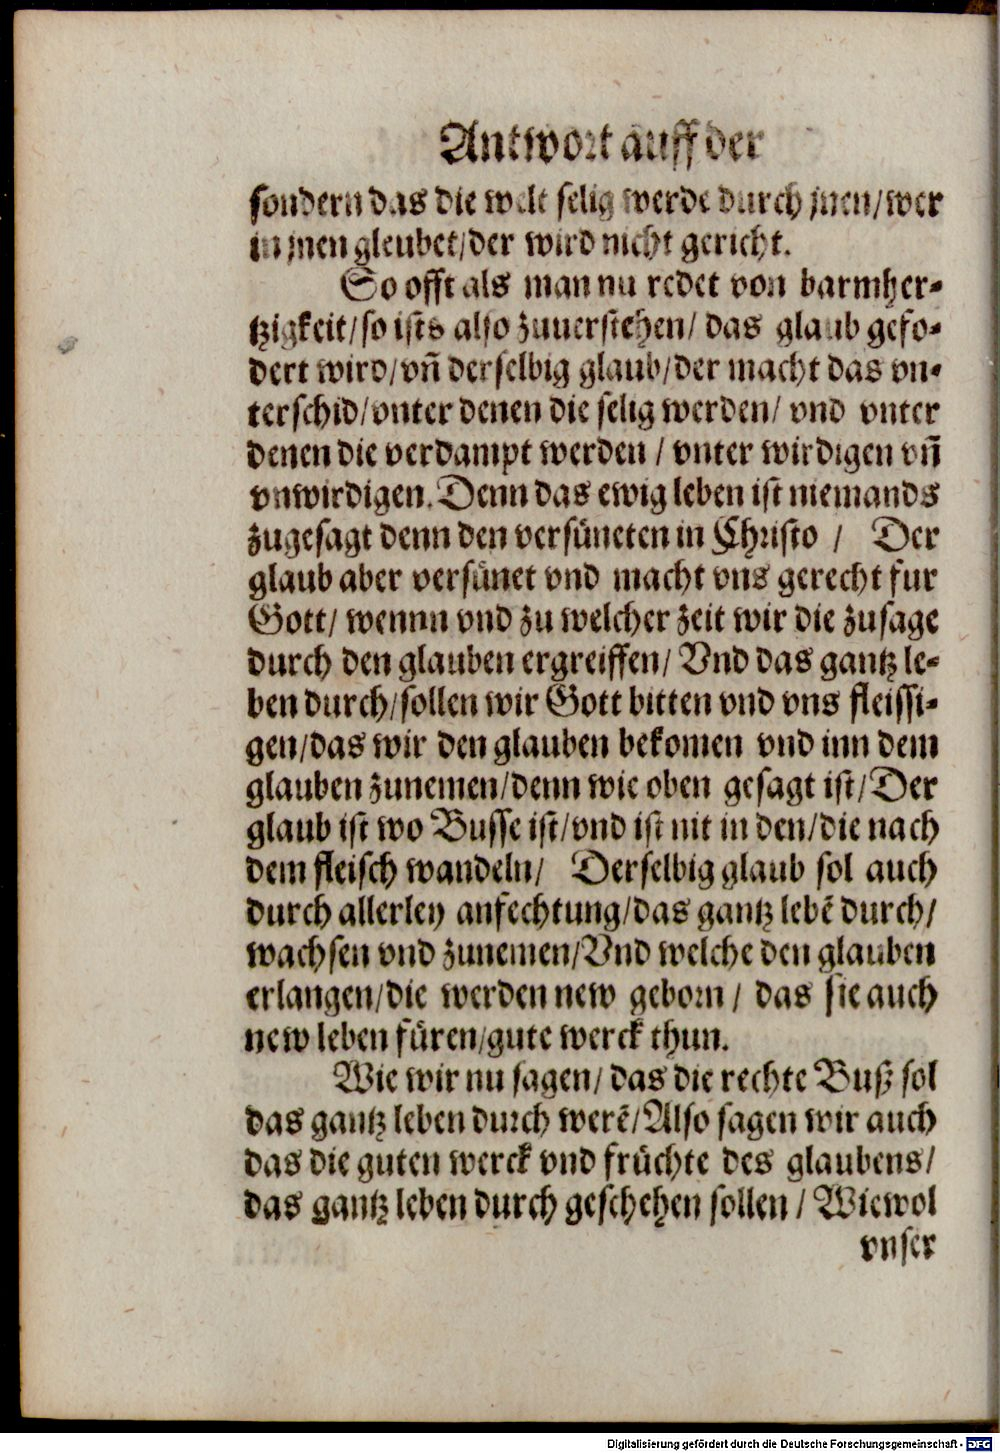 Antwort auff der
sondern das die welt selig werde durch jnen/wer
in jnen gleubet/der wird nicht gericht.
So offt als man nu redet von barmher-
tzigkeit/so ists also zuuerstehen/ das glaub gefo-
dert wird/vn̄ derselbig glaub/der macht das vn-
terschid/vnter denen die selig werden/ vnd vnter
denen die verdampt werden / vnter wirdigen vn̄
vnwirdigen. Denn das ewig leben ist niemands
zugesagt denn den versüneten in Christo / Der
glaub aber versünet vnd macht vns gerecht fur
Gott/ wennn vnd zu welcher zeit wir die zusage
durch den glauben ergreiffen/ Vnd das gantz le-
ben durch/sollen wir Gott bitten vnd vns fleissi-
gen/das wir den glauben bekomen vnd inn dem
glauben zunemen/denn wie oben gesagt ist/Der
glaub ist wo Busse ist/vnd ist nit in den/die nach
dem fleisch wandeln/ Derselbig glaub sol auch
durch allerley anfechtung/das gantz lebē durch/
wachsen vnd zunemen/Vnd welche den glauben
erlangen/die werden new geborn / das sie auch
new leben füren/gute werck thun.
Wie wir nu sagen/ das die rechte Buß sol
das gantz leben durch werē/Also sagen wir auch
das die guten werck vnd früchte des glaubens/
das gantz leben durch geschehen sollen / Wiewol
vnser
Digitalisierung gefördert durch die Deutsche Forschungsgemeinschaft - DFG